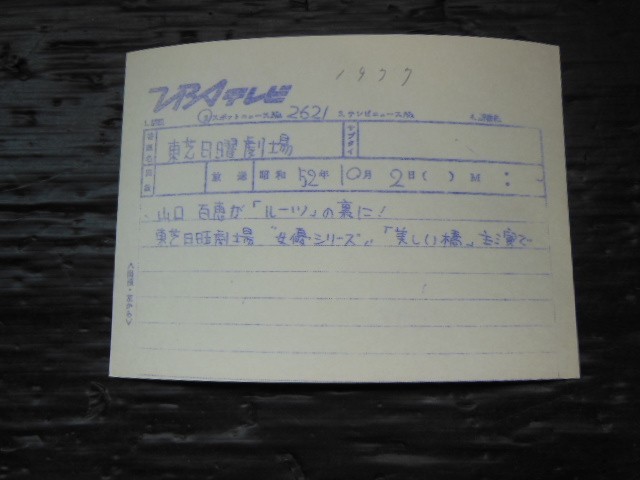 1977
テレビ
②スポットニュース№ 2621 3.テレビニュース№
東芝日曜劇場 サブタイ
放送 昭和 52年 10月 2日( ) M :
山口百恵が「ルーツ」の裏に!
東芝日曜劇場 "女優シリーズ"「美しい橋」主演で